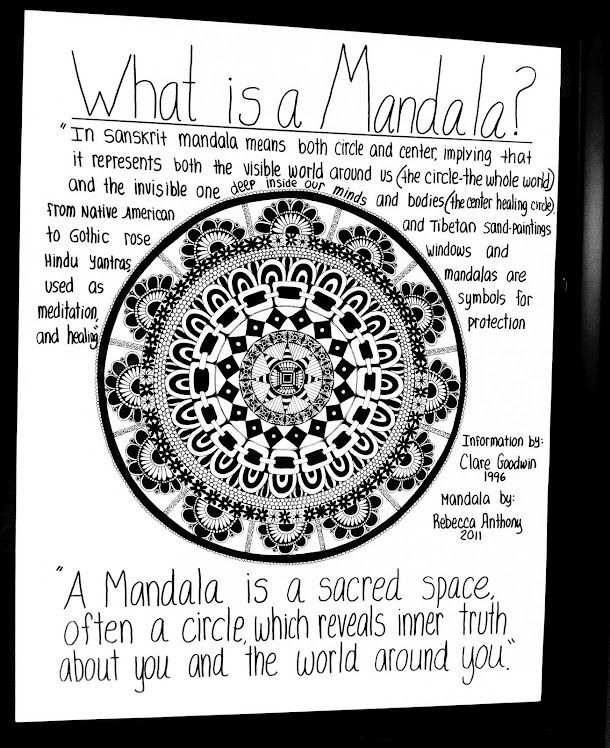 What is a Mandala?
"In Sanskrit mandala means both circle and center, implying that
it represents both the visible world around us (the circle-the whole world)
and the invisible one deep inside our minds and bodies (the center healing circle).
From Native American and Tibetan sand-paintings
to Gothic rose windows and
Hindu yantras, mandalas are
used as symbols for
meditation, protection
and healing"
Information by:
Clare Goodwin
1996
Mandala by:
Rebecca Anthony
2011
"A Mandala is a sacred space,
often a circle, which reveals inner truth
about you and the world around you."